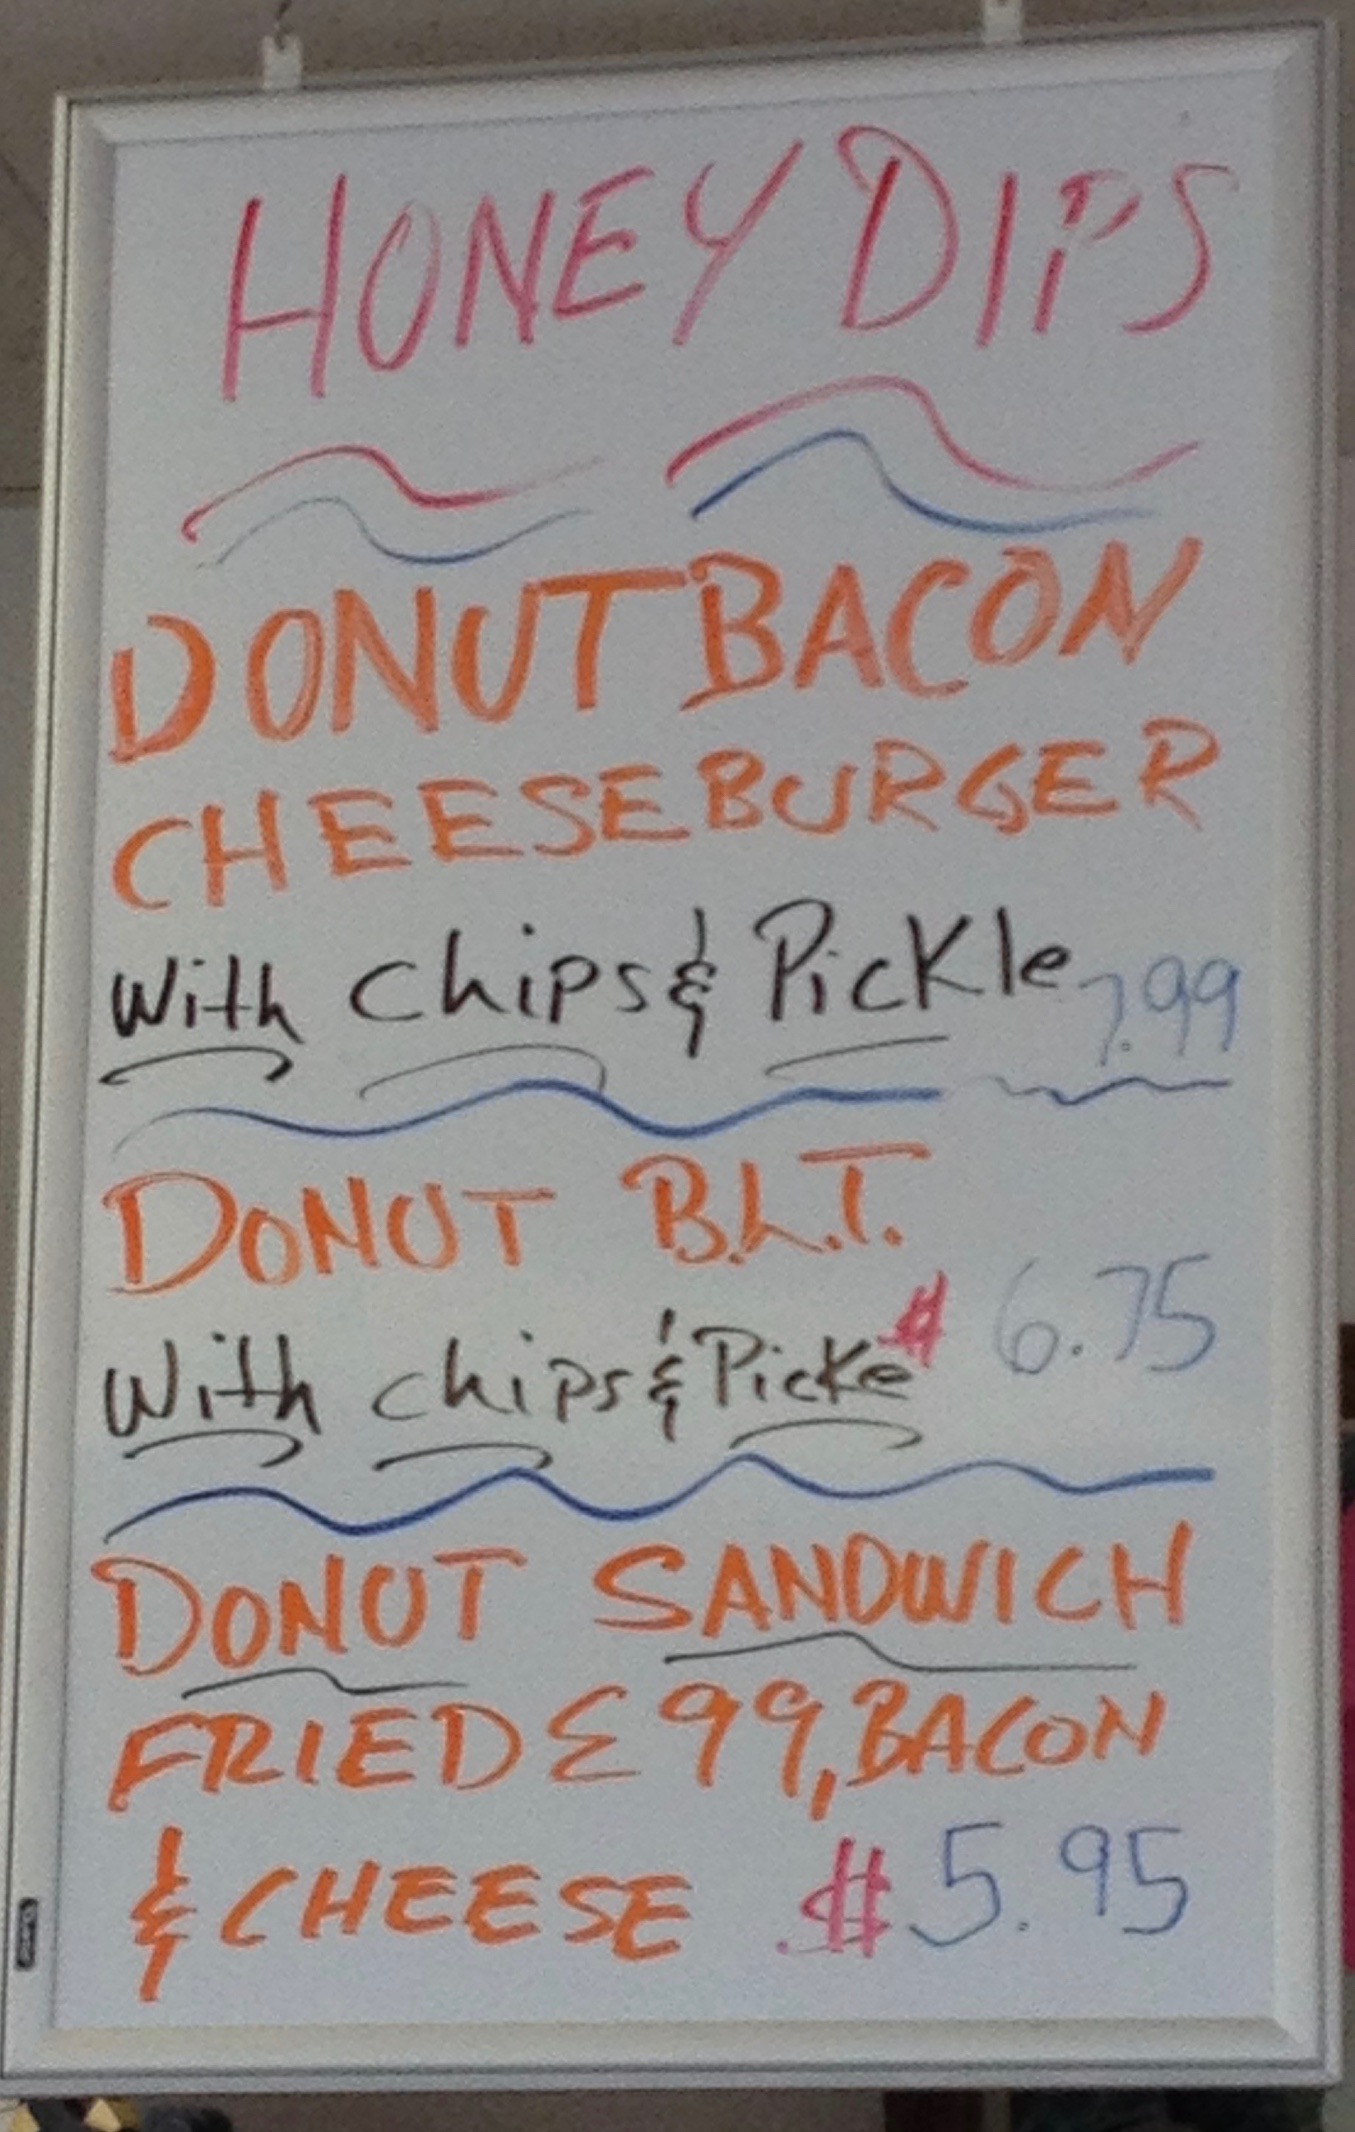 HONEY DIPS
DONUT BACON
CHEESEBURGER
With Chips & Pickle 7.99
DONUT B.L.T.
With Chips & Picke $ 6.75
DONUT SANDWICH
FRIED E99, BACON
& CHEESE $5.95